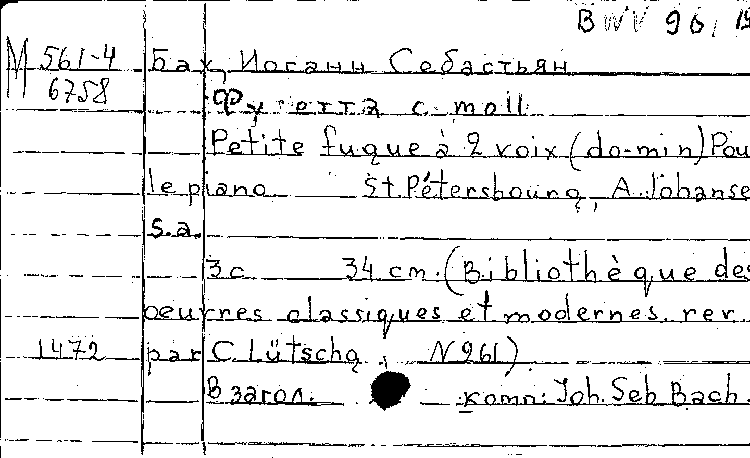 BWV 961
M 561-4 Бах, Иоганн Себастьян
6758 Фугетта c-moll.
Petite fugue à 2 voix (do-min) Pou
le piano St. Pétersbourg, A. Johanse
s.a.
3 с 34 cm. (Bibliothèque des
oeuvres classiques et modernes. rev.
1472 par C. Lütschg, N 961)
В загол. комп: Joh. Seb Bach.